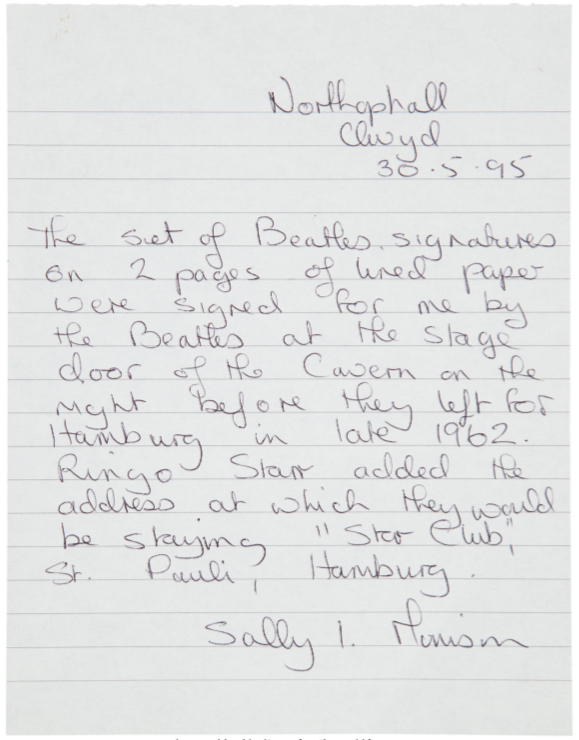 Northophall
Clwyd
30.5.95
The set of Beatles signatures
on 2 pages of lined paper
were signed for me by
the Beatles at the stage
door of the Cavern on the
night before they left for
Hamburg in late 1962.
Ringo Starr added the
address at which they would
be staying "Star Club",
St. Pauli, Hamburg.
Sally I. Morrison